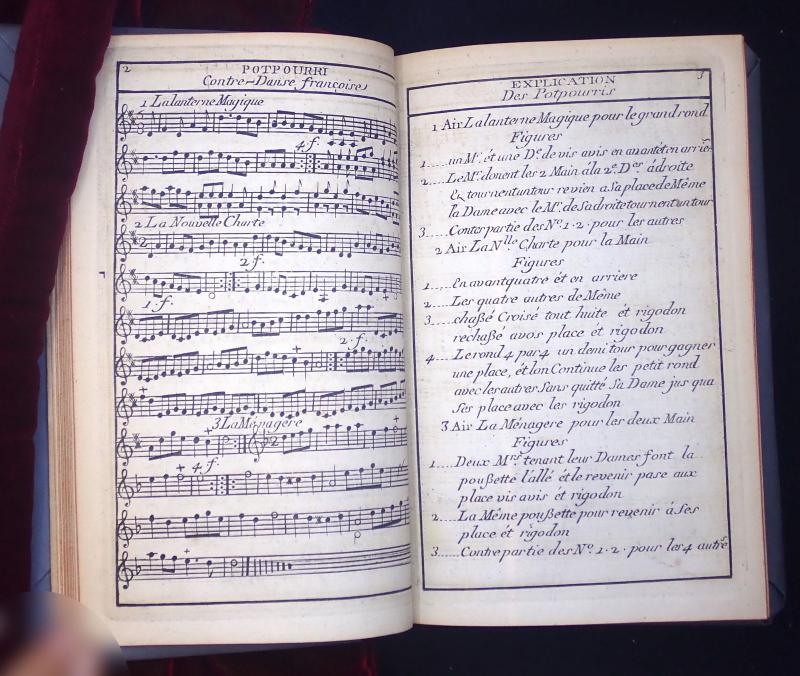 2
POTPOURRI
Contre-Danse françoise
1 La lanterne Magique
4. f.
2 La Nouvelle Charte
2
2 f.
1. f.
2. f.
3 La Menagere
2
4. f.
EXPLICATION
Des Potpourris
1 Air La lanterne Magique pour le grand rond
Figures
1..... un Mr. ét une De. de vis avis en avant ét en arriere
2..... Le Mr. donent les 2 Main á la 2e. Der. ádroite
& tournent un tour revien a Sa place de Même
la Dame avec le Mr. de Sa droite tournent un tour
3..... Contre partie des No. 1 · 2 · pour les autres
2 Air La Nlle Charte pour la Main
Figures
1..... En avant quatre ét en arriere
2..... Les quatre autres de Même
3..... chaßé Croisé tout huite ét rigodon
rechaßé avos place ét rigodon
4..... Le rond 4 par 4 un demi tour pour gagner
une place, ét lon Continue les petit rond
avec les autres Sans quitté Sa Dame jus qua
Ses place avec les rigodon
3 Air La Ménagere pour les deux Main
Figures
1..... Deux Mrs. tenant leur Dames font la
poußette l'allé ét le revenir pase aux
place vis avis ét rigodon
2..... La Même poußette pour revenir á Ses
place ét rigodon
3..... Contre partie des No. 1 · 2 · pour les 4 autres